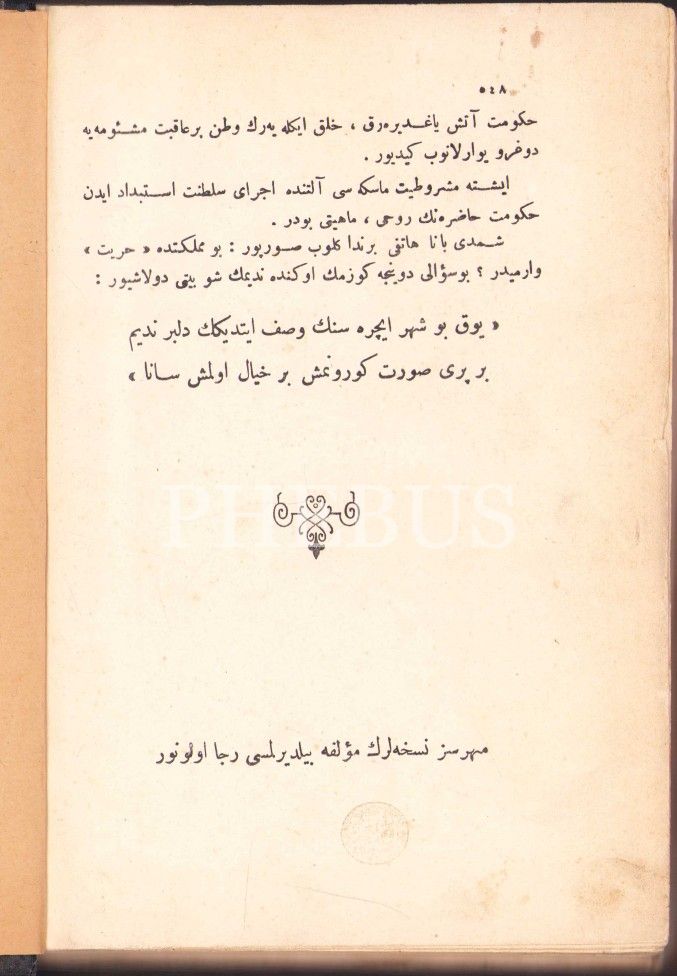 ٥٤٨
حكومت آتش ياغديره‌رق ، خلق ايكله‌يه‌رك وطن بر عاقبت مشئومه‌يه
دوغرو يوارلانوب كيديور .
ايشته مشروطيت ماسكه سى آلتنده اجراى سلطنت استبداد ايدن
حكومت حاضره‌نك روحى ، ماهيتى بودر .
شمدى بانا هاتفى برندا كلوب صوريور : بو مملكتده « حريت »
وارميدر ؟ بوسؤالى دوينجه كوزمك اوكنده نديمك شو بيتى دولاشيور :
« يوق بو شهر ايچره سنك وصف ايتديكك دلبر نديم
بر پرى صورت كورونمش بر خيال اولمش سانا »
PHEBUS
مهرسز نسخه‌لرك مؤلفه بيلديرلمسى رجا اولونور